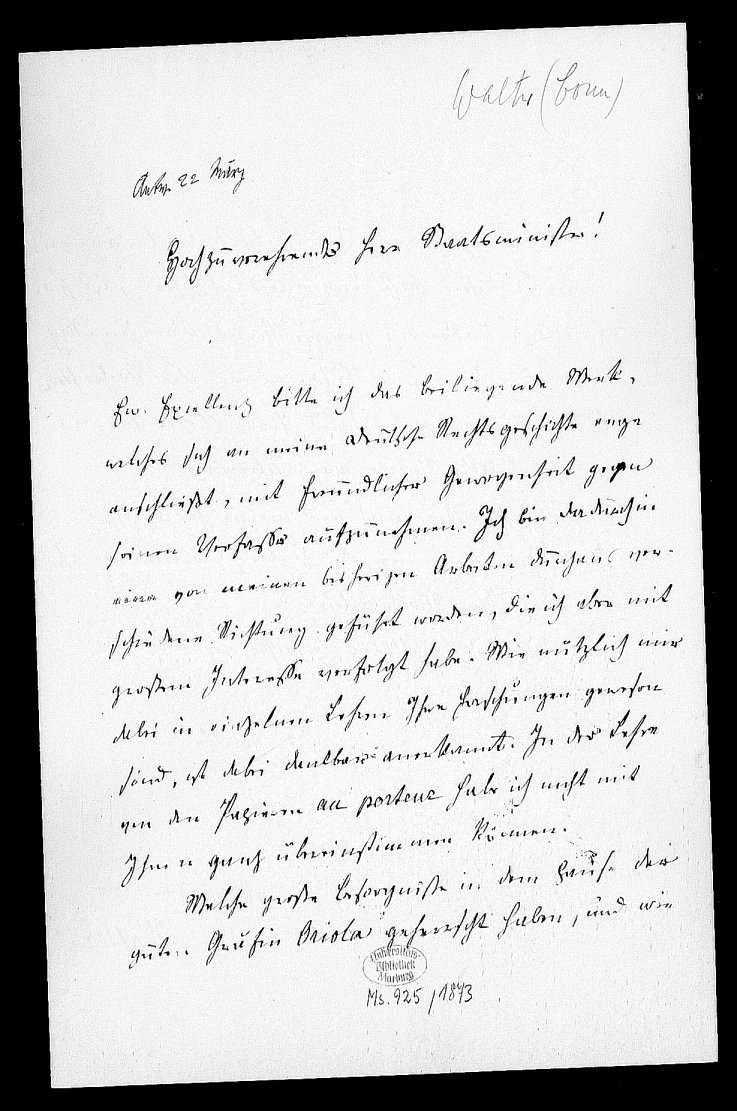 Walter (Bonn)
Antw. 22 März
Hochzuverehrender Herr Staatsminister!
Ew. Excellenz bitte ich das beiliegende Werk,
welches sich an meine Deutsche Rechtsgeschichte enge
anschließt, mit freundlicher Gewogenheit gegen
seinen Verfasser aufzunehmen. Ich bin dadurch in
eine von meinen bisherigen Arbeiten durchaus ver-
schiedene Richtung geführt worden, die ich aber mit
großem Interesse verfolgt habe. Wie nützlich mir
dabei in einzelnen Lehren Ihre Forschungen gewesen
sind, ist dabei dankbar anerkannt. In der Lehre
von den Papieren au porteur habe ich nicht mit
Ihnen ganz übereinstimmen können.
Welche große Besorgnisse in dem Hause der
guten Gräfin Briola geherrscht haben, und wie
Universitäts-
Bibliothek
Marburg
Ms. 925 / 1873